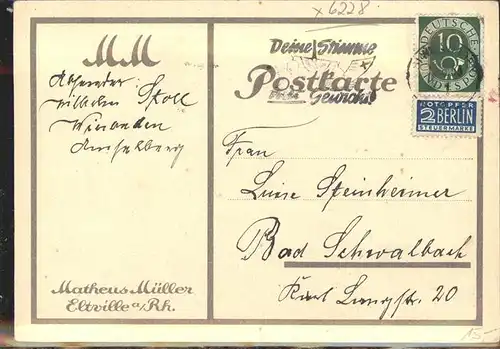 x 6228
MM
Absender
Wilhelm Stoll
Deine Stimme
Postkarte
Gewicht!
DEUTSCHE
10
NOTOPFER
2 BERLIN
STEUERMARKE
Frau
Luise Steinheimer
Bad Schwalbach
Karl Langstr. 20
Matheus Müller
Eltville a/Rh.
15-